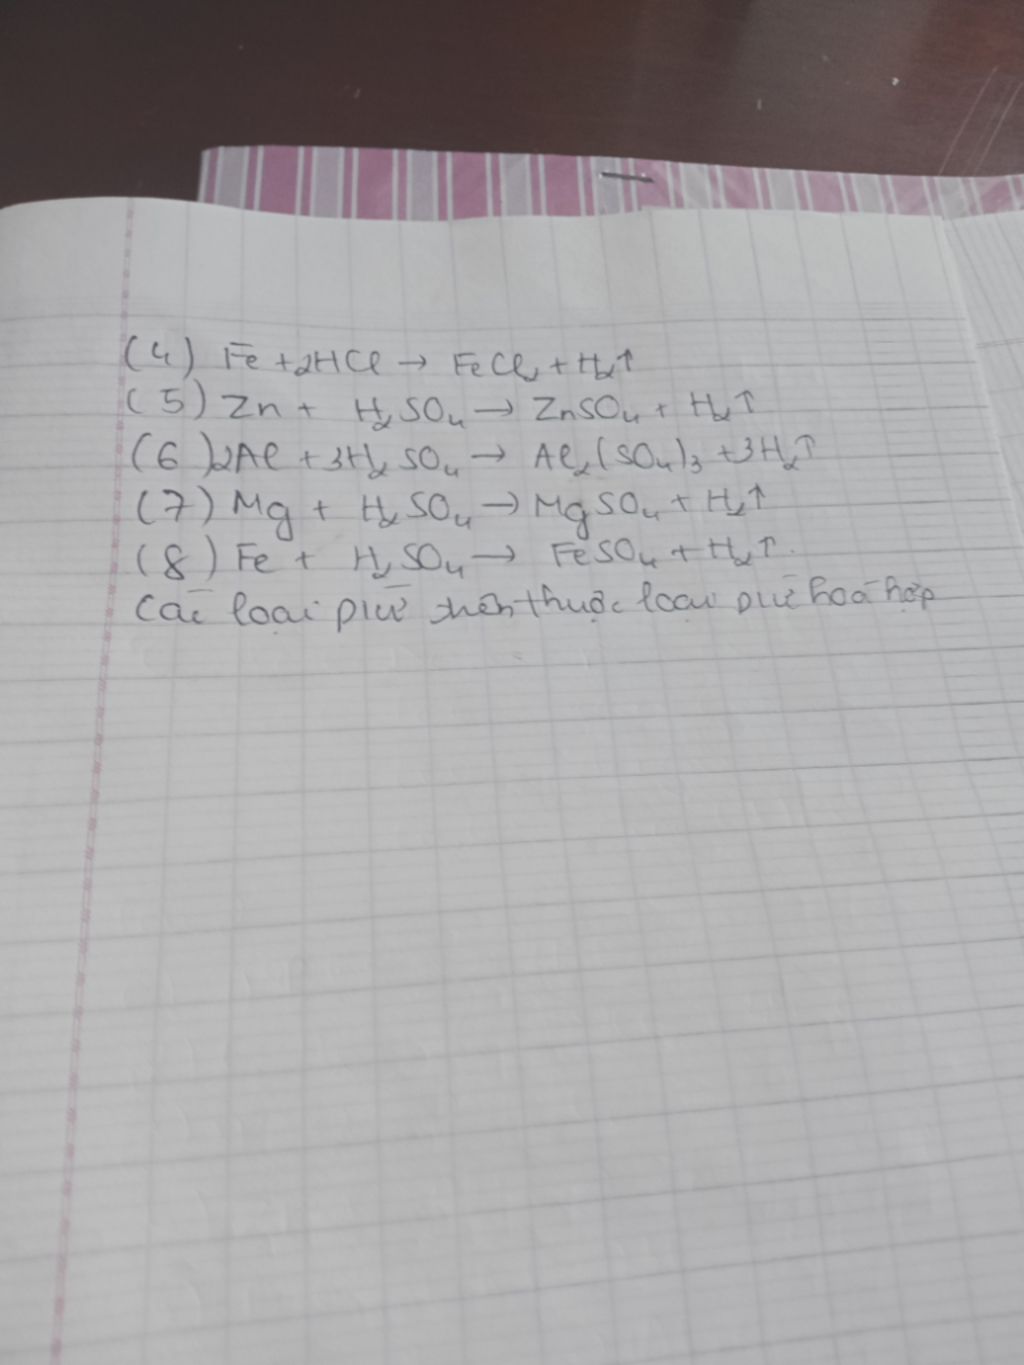 (4) Fe + 2HCl → FeCl₂ + H₂↑
(5) Zn + H₂SO₄ → ZnSO₄ + H₂↑
(6) 2Al + 3H₂SO₄ → Al₂(SO₄)₃ + 3H₂↑
(7) Mg + H₂SO₄ → MgSO₄ + H₂↑
(8) Fe + H₂SO₄ → FeSO₄ + H₂↑.
Các loại pứ trên thuộc loại pứ hoá hợp